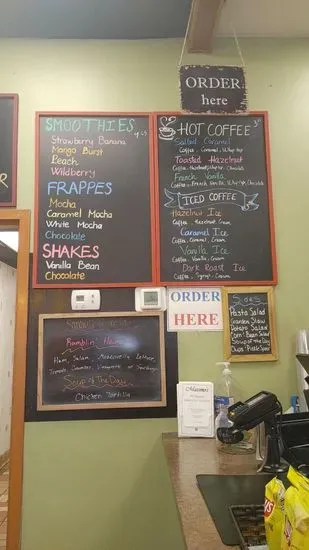 ORDER
here
SMOOTHIES
Strawberry Banana
Mango Burst
Peach
Wildberry
FRAPPES
Mocha
Caramel Mocha
White Mocha
Chocolate
SHAKES
Vanilla Bean
Chocolate
HOT COFFEE
Salted Caramel
Coffee, Caramel, Whip
Toasted Hazelnut
French Vanilla
Coffee, French Vanilla, Whip, Chocolate
ICED COFFEE
Hazelnut Ice
Coffee, Hazelnut, Cream
Caramel Ice
Coffee, Caramel, Cream
Vanilla Ice
Coffee, Vanilla, Cream
Dark Roast Ice
Coffee, Syrup, Cream
ORDER
HERE
Sides
Pasta Salad
Potato Salad
Soup of the Day
Ramblin
Ham, Salami, Mozzarella, Lettuce,
Soup of The Day
Chicken Tortilla